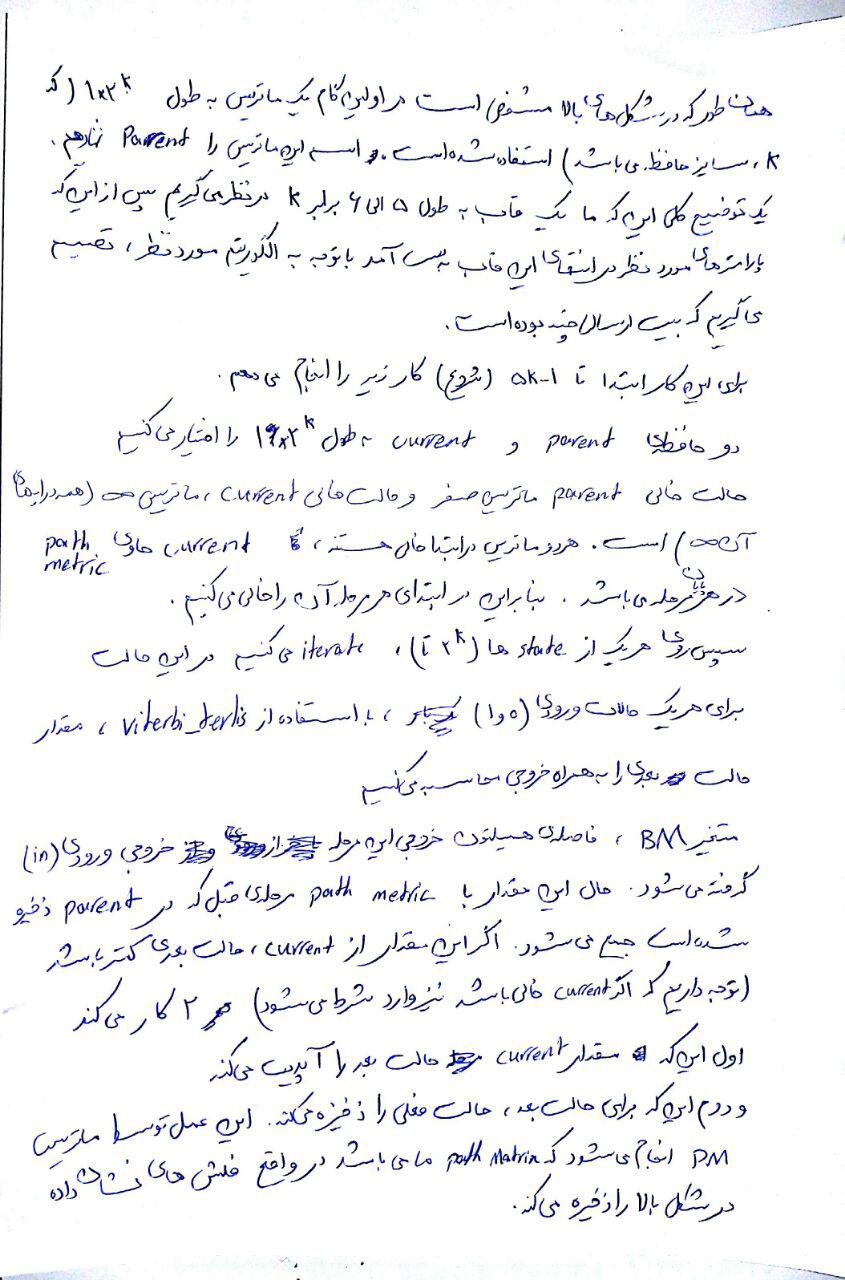 همان طور که در شکل های بالا مشخص است در اولین گام یک ماتریس به طول 1x2^k (که
k، سایز حافظه می باشد) استفاده شده است. اسم این ماتریس را Parent نهادیم.
یک توضیح کلی این که ما یک قاب به طول ۵ الی ۶ برابر k در نظر می گیریم پس از این که
پارامترهای مورد نظر در انتهای این قاب به دست آمد با توجه به الگوریتم مورد نظر، تصمیم
می گیریم که بیت ارسالی چند بوده است.
برای این کار ابتدا تا 5k-1 (شروع) کار زیر را انجام می دهیم.
دو حافظه ی parent و current به طول 1x2^k را اختیار می کنیم
حالت خالی parent ماتریس صفر و حالت خالی current، ماتریس ∞ (همه درایه های
آن ∞) است. هر دو ماتریس در ابتدا خالی هستند، current حاوی path metric
در پایان هر مرحله می باشد. بنابراین در ابتدای هر مرحله آن را خالی می کنیم.
سپس روی هر یک از state ها (۱ تا 2^k)، iterate می کنیم در این حالت
برای هر یک حالات ورودی (۰ و ۱)، با استفاده از viterbi_terlis، مقدار
حالت بعدی را به همراه خروجی محاسبه می کنیم
متغیر BM، فاصله ی همیلتون خروجی این مرحله از خروجی ورودی (in)
گرفته می شود. حال این مقدار با path metric مرحله ی قبل که در parent ذخیره
شده است جمع می شود. اگر این مقدار از current، حالت بعدی کمتر باشد
(توجه داریم که اگر current خالی باشد نیز وارد شرط می شود) ۲ کار می کند
اول این که مقدار current حالت بعد را آپدیت می کند
و دوم این که برای حالت بعد، حالت فعلی را ذخیره می کند. این عمل توسط ماتریس
PM انجام می شود که path Matrix ما می باشد در واقع فلش های نشان داده
در شکل بالا را ذخیره می کند.